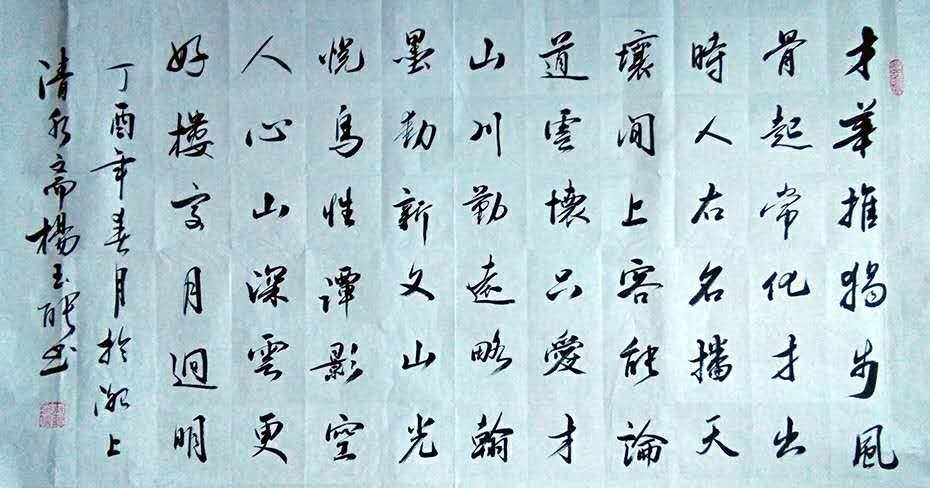 才華推獨步風
骨起常化才出
時人右名播天
壤間上客能論
道雲懷只愛才
山川勤遠略翰
墨勤新文山光
悦鳥性譚影空
人心山深雲更
好樓高月迥明
丁酉年春月於湖上
清水齋楊玉書